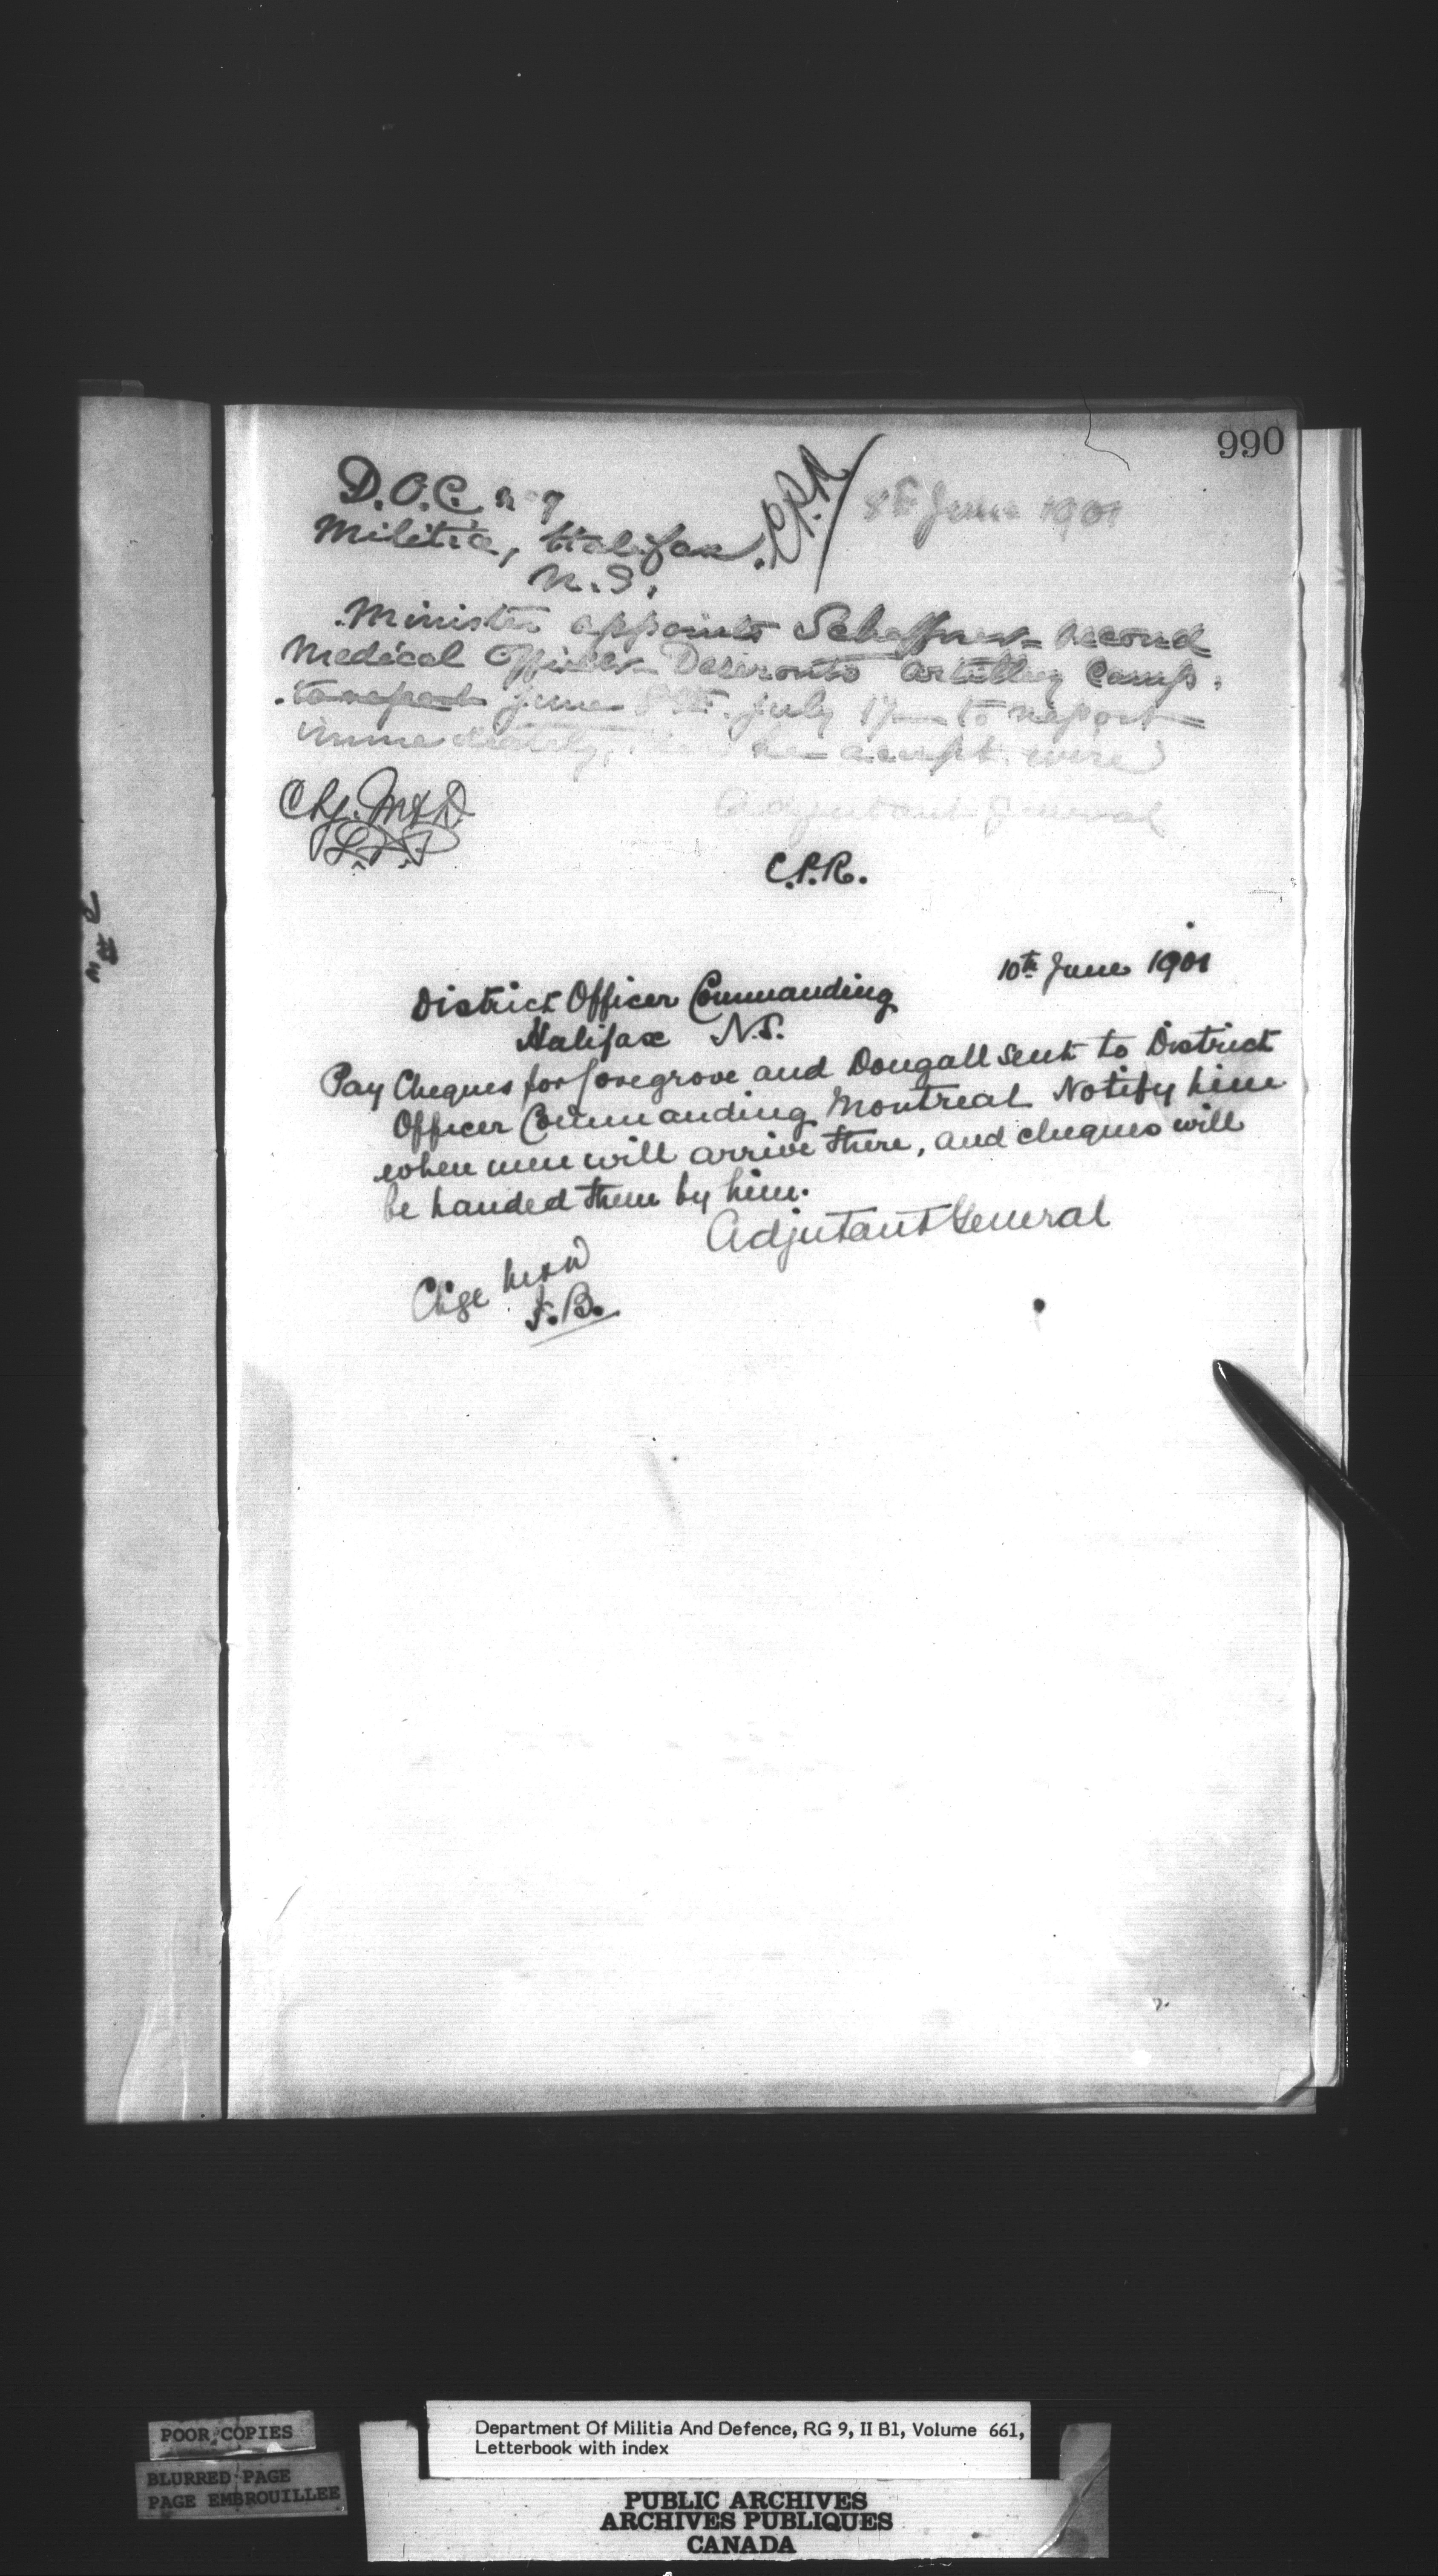 990
D.O.C. No 7
C.P.R.
8th June 1901
Militia, Halifax.
N.S.
Minister appoints Schaffner second
Medical Officer Deseronto Artillery Camp.
to report June 8th. July 17 to report
immediately, he accept wire
Adjutant General
Chg. M&D
C.P.R.
10th June 1901
District Officer Commanding
Halifax N.S.
Pay Cheques for Foxegrove and Dougall sent to District
Officer Commanding Montreal Notify him
when men will arrive there, and cheques will
be handed them by him.
Adjutant General
Chge M&D
F.B.
POOR COPIES
BLURRED PAGE
PAGE EMBROUILLEE
Department Of Militia And Defence, RG 9, II B1, Volume 661,
Letterbook with index
PUBLIC ARCHIVES
ARCHIVES PUBLIQUES
CANADA